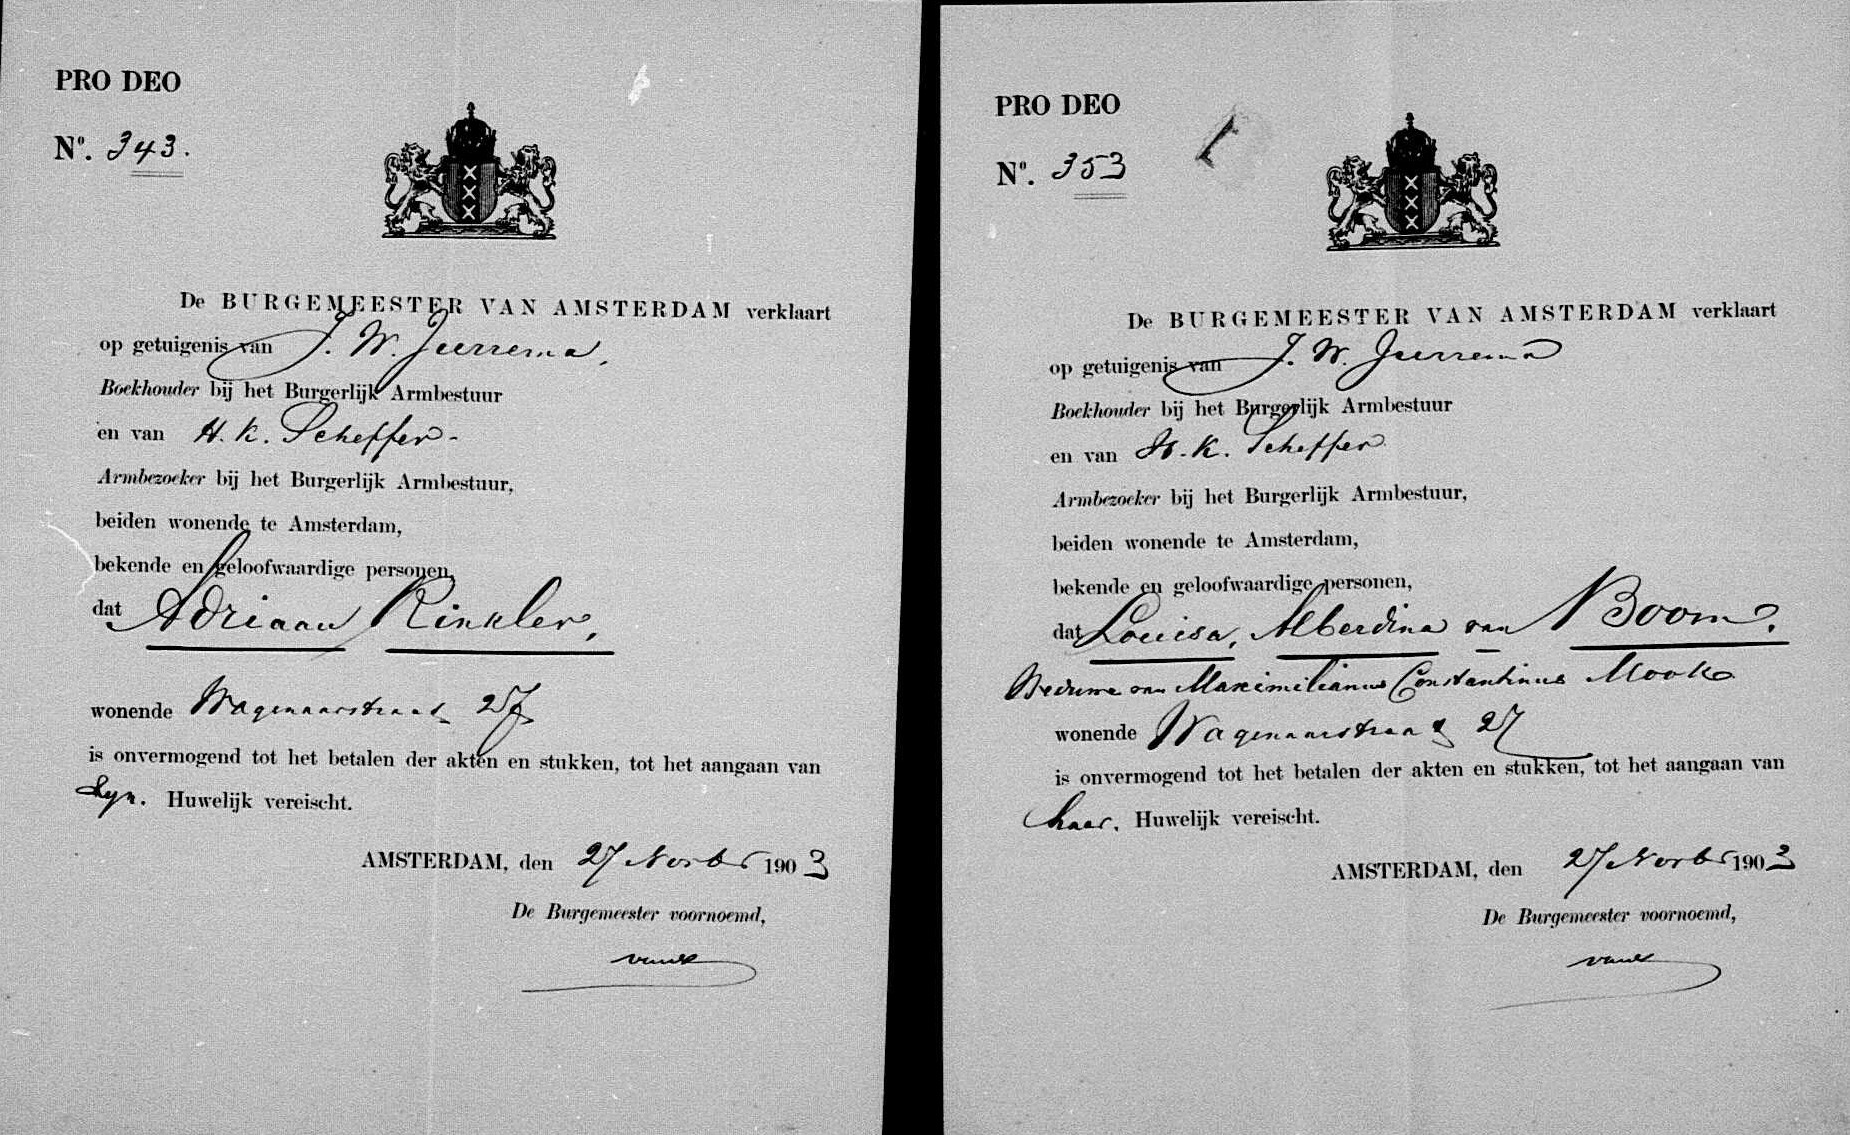 PRO DEO
No. 343.
De BURGEMEESTER VAN AMSTERDAM verklaart
op getuigenis van J. W. Jurrema,
Boekhouder bij het Burgerlijk Armbestuur
en van H. K. Scheffer
Armbezoeker bij het Burgerlijk Armbestuur,
beiden wonende te Amsterdam,
bekende en geloofwaardige personen,
dat Adriaan Rinkler,
wonende Wagenaarstraat 27
is onvermogend tot het betalen der akten en stukken, tot het aangaan van
Zyn. Huwelijk vereischt.
AMSTERDAM, den 27 Novbr 1903
De Burgemeester voornoemd,
PRO DEO
No. 353
De BURGEMEESTER VAN AMSTERDAM verklaart
op getuigenis van J. W. Jurrema
Boekhouder bij het Burgerlijk Armbestuur
en van H. K. Scheffer
Armbezoeker bij het Burgerlijk Armbestuur,
beiden wonende te Amsterdam,
bekende en geloofwaardige personen,
dat Louisa, Alberdina van Boom,
Weduwe van Maximilianus Constantinus Mook
wonende Wagenaarstraat 27
is onvermogend tot het betalen der akten en stukken, tot het aangaan van
haar. Huwelijk vereischt.
AMSTERDAM, den 27 Novbr 1903
De Burgemeester voornoemd,